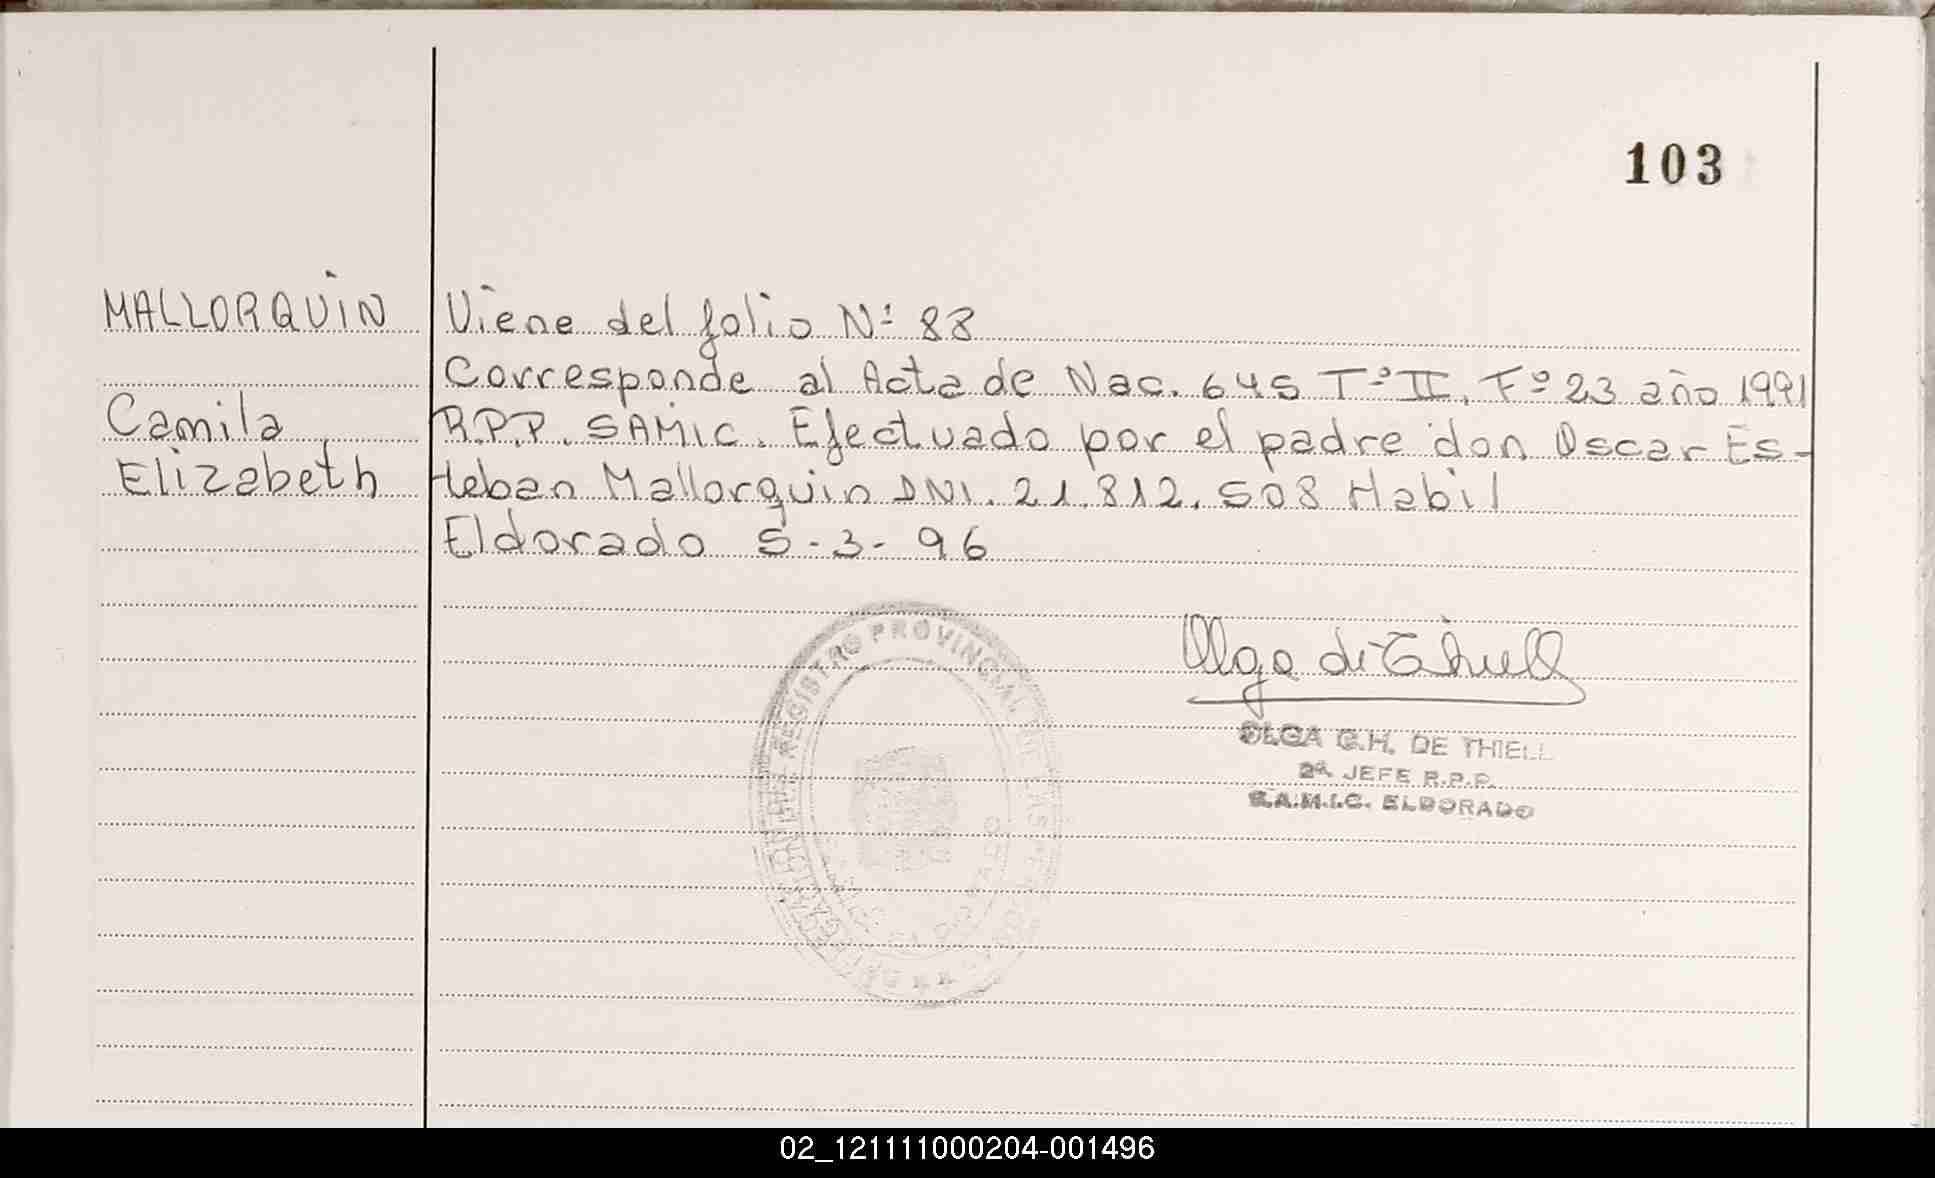 103
MALLORQUIN
Camila
Elizabeth
Viene del folio Nº 88
Corresponde al Acta de Nac. 645 Tº II. Fº 23 año 1991
R.P.P. SAMIC. Efectuado por el padre don Oscar Es-
teban Mallorquin DNI. 21.812.508 Habil
Eldorado 5-3-96
REGISTRO PROVINCIAL DE LAS PERSONAS
Olga de Thiell
OLGA G.H. DE THIELL
2ª JEFE R.P.P.
S.A.M.I.C. ELDORADO
02_121111000204-001496